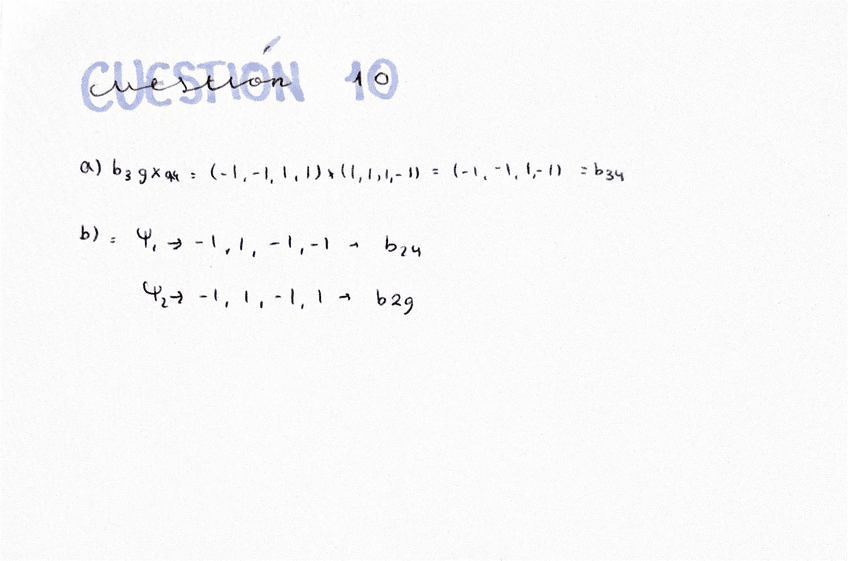 cuestión 10
a) b₃g x au = (-1, -1, 1, 1) x (1, 1, 1, -1) = (-1, -1, 1, -1) = b₃u
b) = Ψ₁ → -1, 1, -1, -1 → b₂u
Ψ₂ → -1, 1, -1, 1 → b2g